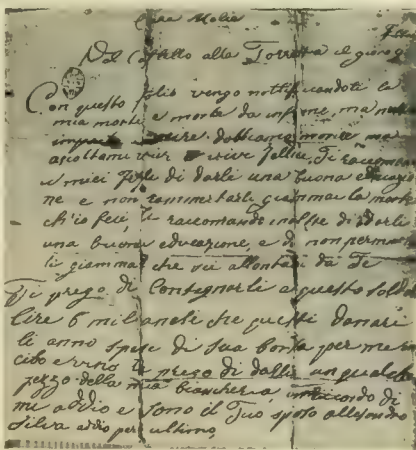 Cara Molie
Dal Castello alla Torretta il giorno
Con questo folio vengo nottificandoti la
mia morte e morte da infame, ma
dobbiamo morire ma
ascoltami vivi e vive fellice, Ti racomando
a miei figli di darli una buona educazio
ne e non ramentarli giammai la morte
ch'io feci, ti raccomando inoltre di darli
una buona educazione, e di non perme
ti giammai che sii allontani da Te
Ti prego di Consegnarli a questo solda
lire 6 milanesi che questi danari
li anno spesi di sua borsa per me in
cibo e vino ti prego di dalli un qualche
pezzo della mia biancheria in ricordo di
mi addio e sono il Tuo sposo allesandro
Silva addio per ultimo,